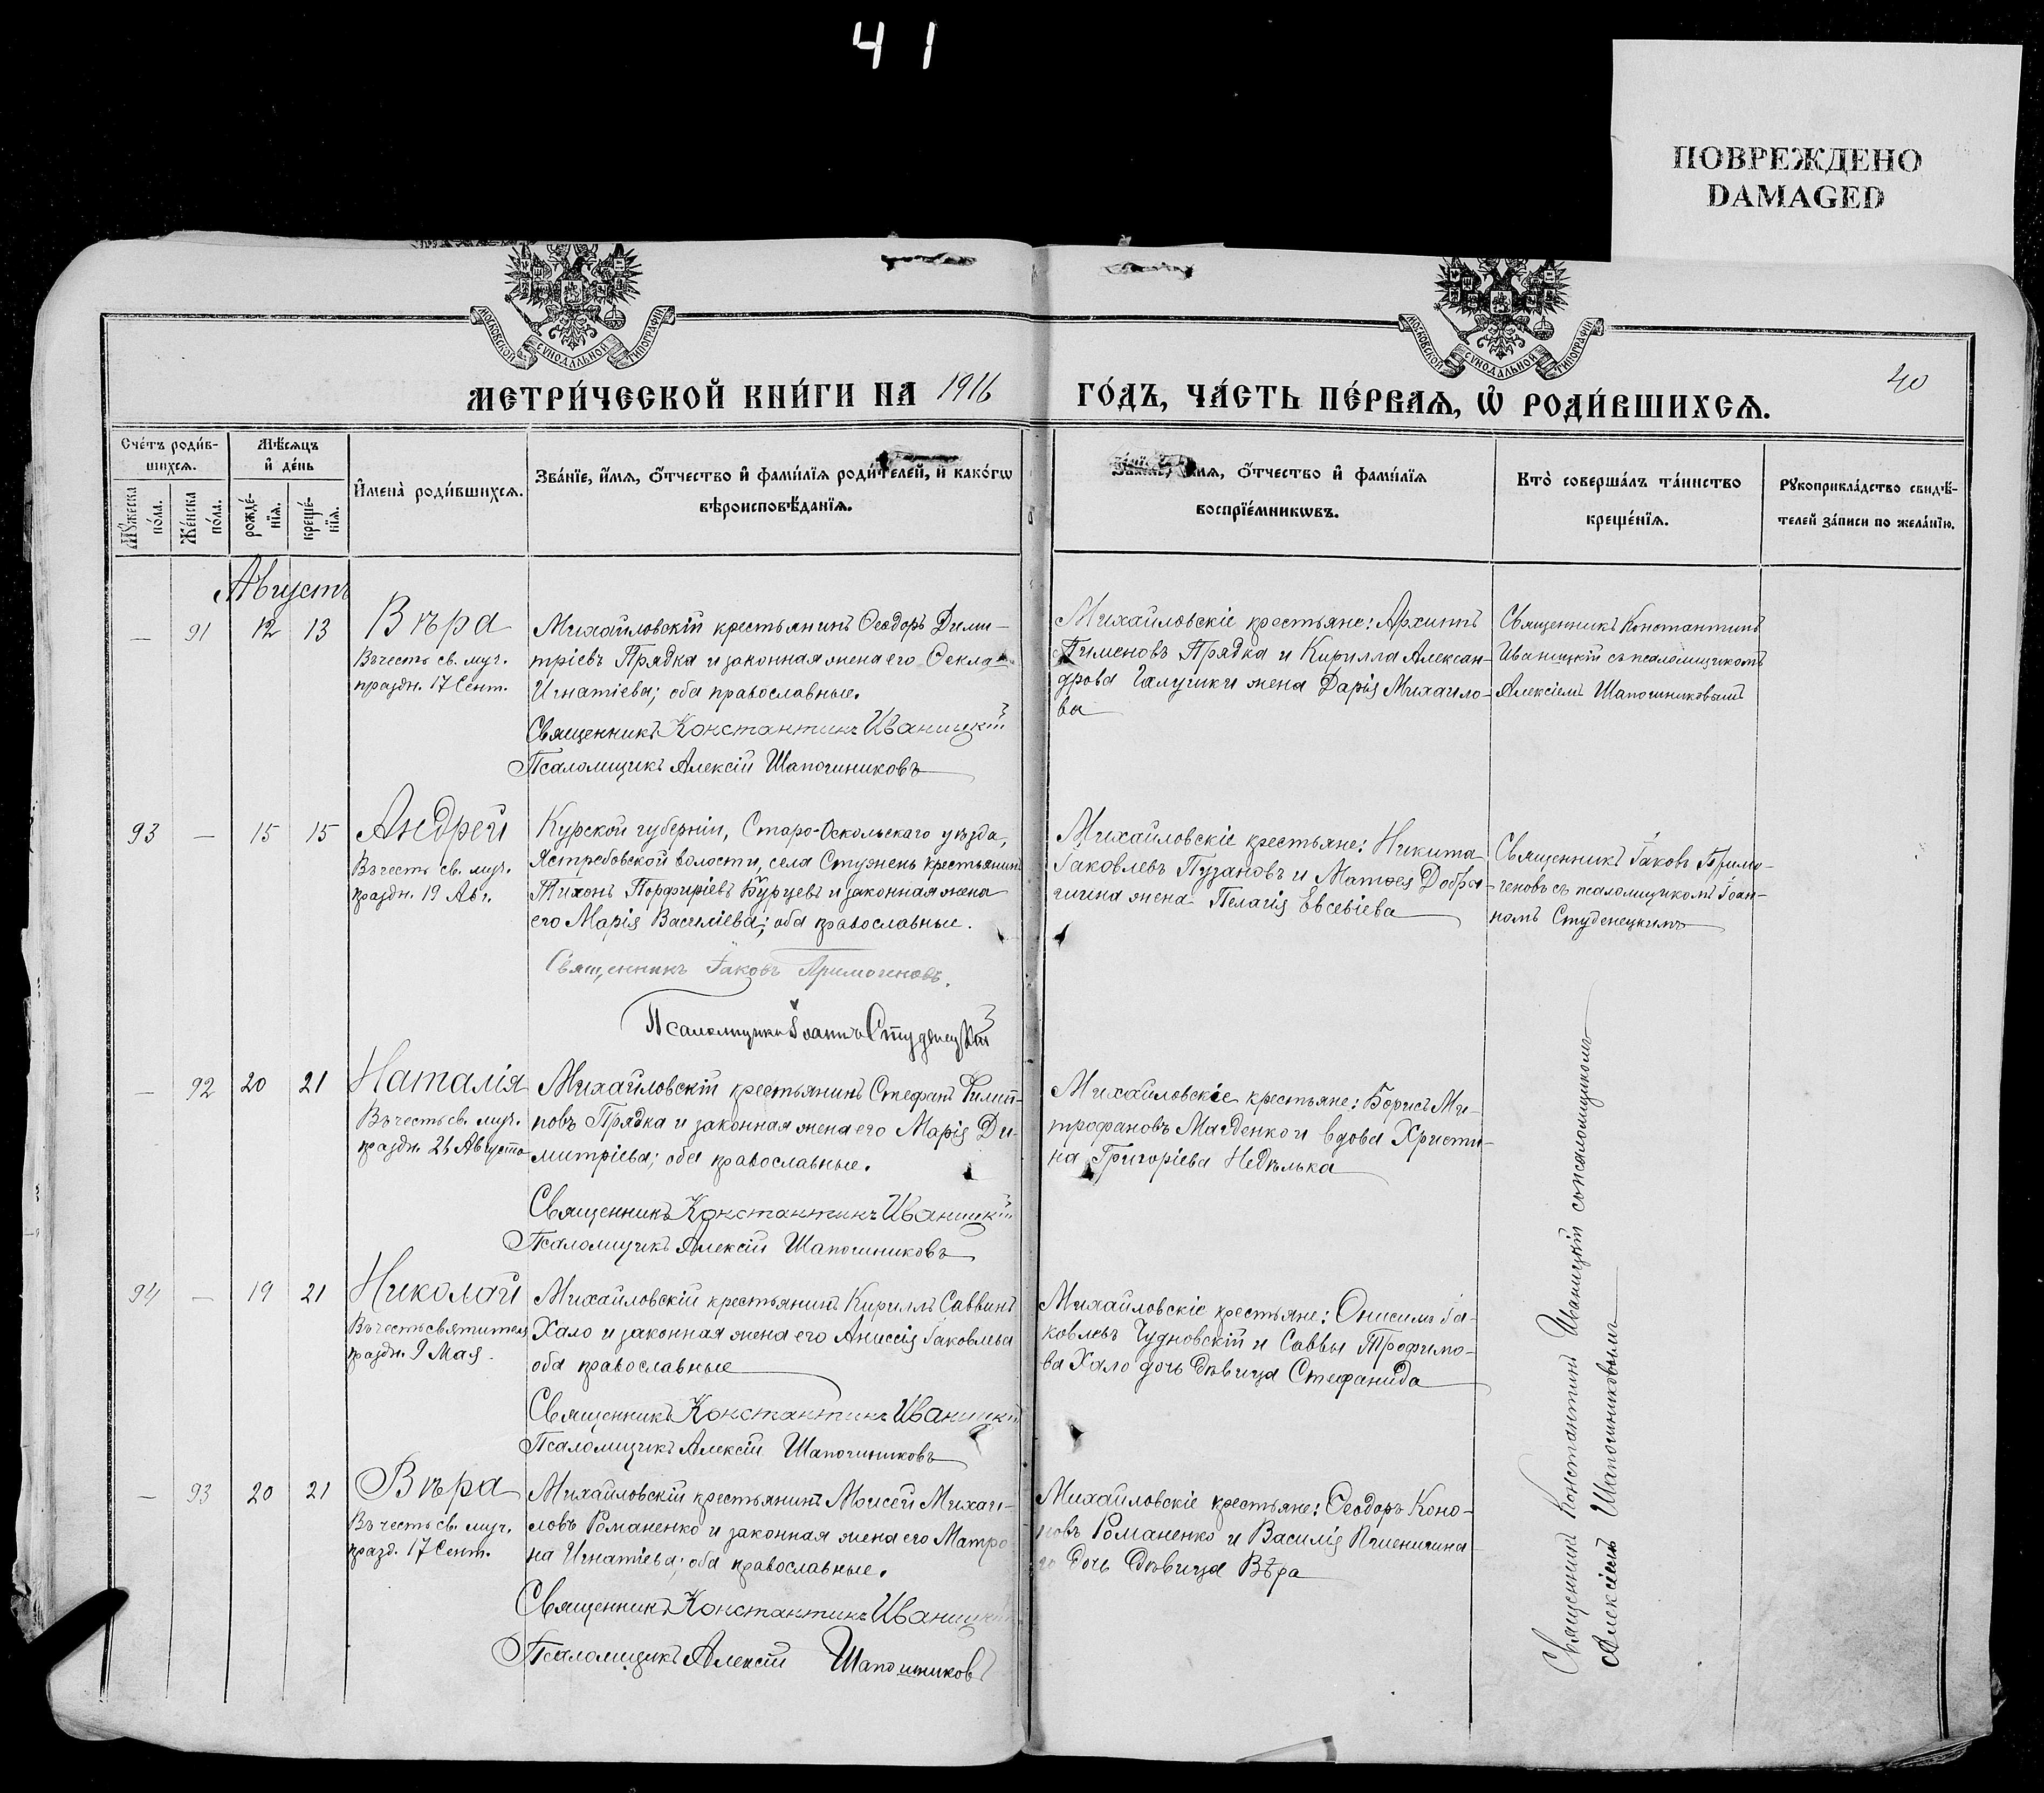 41
ПОВРЕЖДЕНО
DAMAGED
МОСКОВСКОЙ СѴНОДАЛЬНОЙ ТИПОГРАФІИ
МОСКОВСКОЙ СѴНОДАЛЬНОЙ ТИПОГРАФІИ
40
МЕТРИ́ЧЕСКОЙ КНИ́ГИ НА 1916 ГО́ДЪ, ЧА́СТЬ ПЕ́РВАѦ, Ѡ҆ РОДИ́ВШИХСѦ.
Сче́тъ роди́в-
шихсѧ.
Мꙋ́жеска по́ла.
Же́нска по́ла.
Мѣ́сѧцъ
и҆ де́нь
рожде́-
нїѧ.
креще́-
нїѧ.
И҆мена̀ роди́вшихсѧ.
Зва́нїе, и҆́мѧ, ѻ҆́тчество и҆ фами́лїѧ роди́телей, и҆ како́гѡ
вѣроисповѣ́данїѧ.
Зва́нїе, и҆́мѧ, ѻ҆́тчество и҆ фами́лїѧ
воспрїе́мникѡвъ.
Кто̀ соверша́лъ та́инство
креще́нїѧ.
Рꙋкоприкла́дство свидѣ́-
телей за́писи по жела́нїю.
Августъ
— 91 12 13 Вѣра
Въ честь св. муч.
праздн. 17 Сент.
Михайловскій крестьянинъ Ѳеодоръ Дими-
тріевъ Прядка и законная жена его Ѳекла
Игнатіева; оба православные.
Священникъ Константинъ Иваницкій
Псаломщикъ Алексій Шапошниковъ
Михайловскіе крестьяне: Архиппъ
Пименовъ Прядка и Кирилла Алексан-
дрова Галушки жена Дарія Михаило-
ва
Священникъ Константинъ
Иваницкій съ псаломщикомъ
Алексіемъ Шапошниковымъ
93 — 15 15 Андрей
Въ честь св. муч.
праздн. 19 Авг.
Курской губерніи, Старо-Оскольскаго уѣзда,
Ястребовской волости, села Стужень крестьянинъ
Тихонъ Порфиріевъ Бурцевъ и законная жена
его Марія Васильева; оба православные.
Священникъ Іаковъ Примогеновъ.
Псаломщикъ Іоаннъ Студенецкій
Михайловскіе крестьяне: Никита
Іаковлевъ Пузановъ и Матѳея Добры-
гина жена Пелагія Евсевіева
Священникъ Іаковъ Примо-
геновъ съ псаломщикомъ Іоан-
номъ Студенецкимъ
— 92 20 21 Наталія
Въ честь св. муч.
праздн. 26 Августа
Михайловскій крестьянинъ Стефанъ Филип-
повъ Прядка и законная жена его Марія Ди-
митріева; оба православные.
Священникъ Константинъ Иваницкій
Псаломщикъ Алексій Шапошниковъ
Михайловскіе крестьяне: Борисъ Ми-
трофановъ Магденко и вдова Христи-
на Григоріева Недѣлька
94 — 19 21 Николай
Въ честь святителя
праздн. 9 Мая.
Михайловскій крестьянинъ Кириллъ Саввинъ
Хало и законная жена его Аниссія Іаковлева
оба православные
Священникъ Константинъ Иваницкій
Псаломщикъ Алексій Шапошниковъ
Михайловскіе крестьяне: Онисимъ Іа-
ковлевъ Чудновскій и Саввы Трофимо-
ва Хало дочь дѣвица Стефанида
— 93 20 21 Вѣра
Въ честь св. муч.
празд. 17 Сент.
Михайловскій крестьянинъ Моисей Михаи-
ловъ Романенко и законная жена его Матро
на Игнатіева; оба православные.
Священникъ Константинъ Иваницкій
Псаломщикъ Алексій Шапошниковъ
Михайловскіе крестьяне: Ѳеодоръ Коно-
новъ Романенко и Василія Пшеничнa-
го дочь дѣвица Вѣра
Священникъ Константинъ Иваницкій съ псаломщикомъ
Алексіемъ Шапошниковымъ